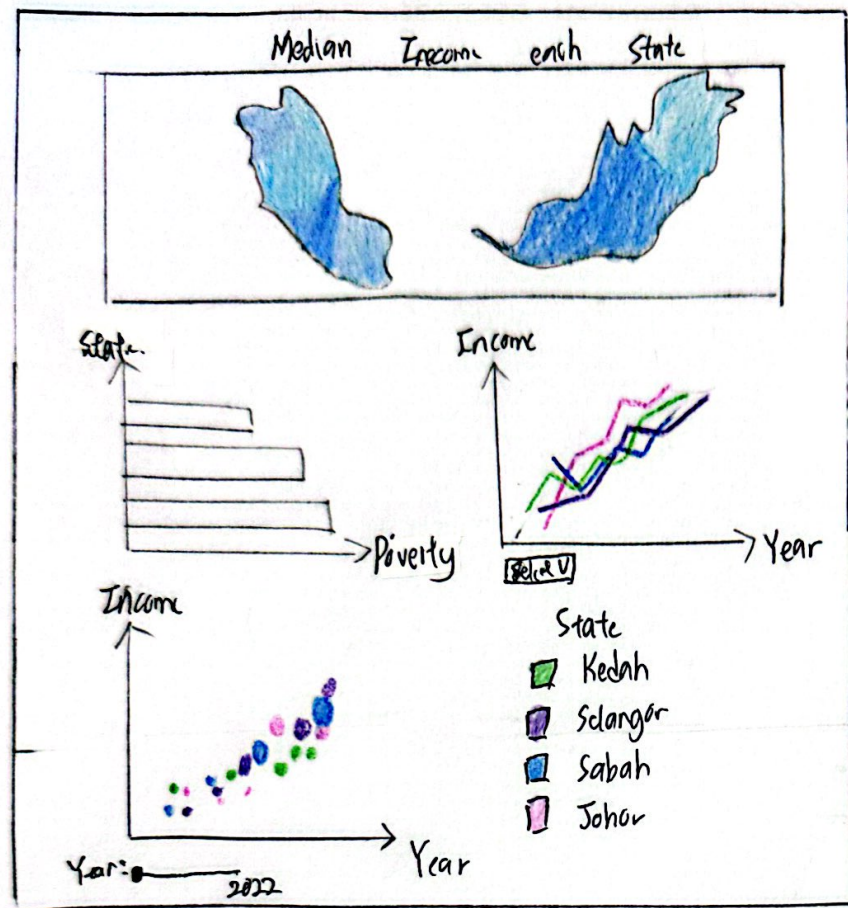 Median Inecome each State
State.
Poverty
Income
Year
Select V
Income
Year
Year:
2022
State
Kedah
Selangor
Sabah
Johor